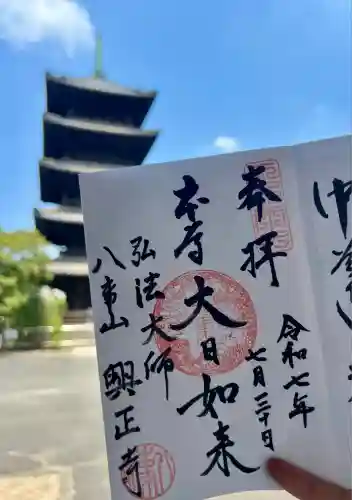 奉拝
令和七年
七月三十日
本尊
大日如来
弘法大師
八事山 興正寺